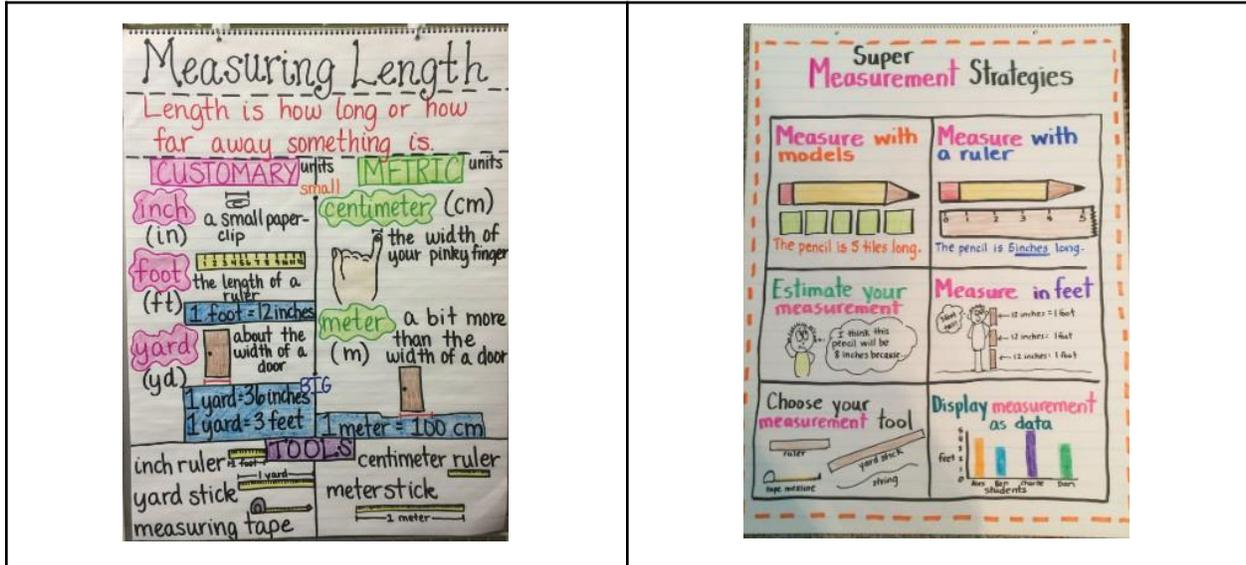 Measuring Length
Length is how long or how
far away something is.
CUSTOMARY units
METRIC units
small
inch
(in)
a small paper-
clip
foot
(ft)
1 2 3 4 5 6 7 8 9 10 11 12
the length of a
ruler
1 foot = 12 inches
yard
(yd)
about the
width of a
door
BIG
1 yard = 36 inches
1 yard = 3 feet
centimeter (cm)
the width of
your pinky finger
meter
(m)
a bit more
than the
width of a door
1 meter = 100 cm
TOOLS
inch ruler
1 foot
yard stick
1 yard
measuring tape
centimeter ruler
meterstick
1 meter
Super
Measurement Strategies
Measure with
models
The pencil is 5 tiles long.
Measure with
a ruler
0 1 2 3 4 5
The pencil is 5 inches long.
Estimate your
measurement
I think this
pencil will be
8 inches because...
Measure in feet
12 inches = 1 foot
12 inches = 1 foot
12 inches = 1 foot
Choose your
measurement tool
ruler
yard stick
tape measure
string
Display measurement
as data
feet
Ben
Charlie
Dan
students